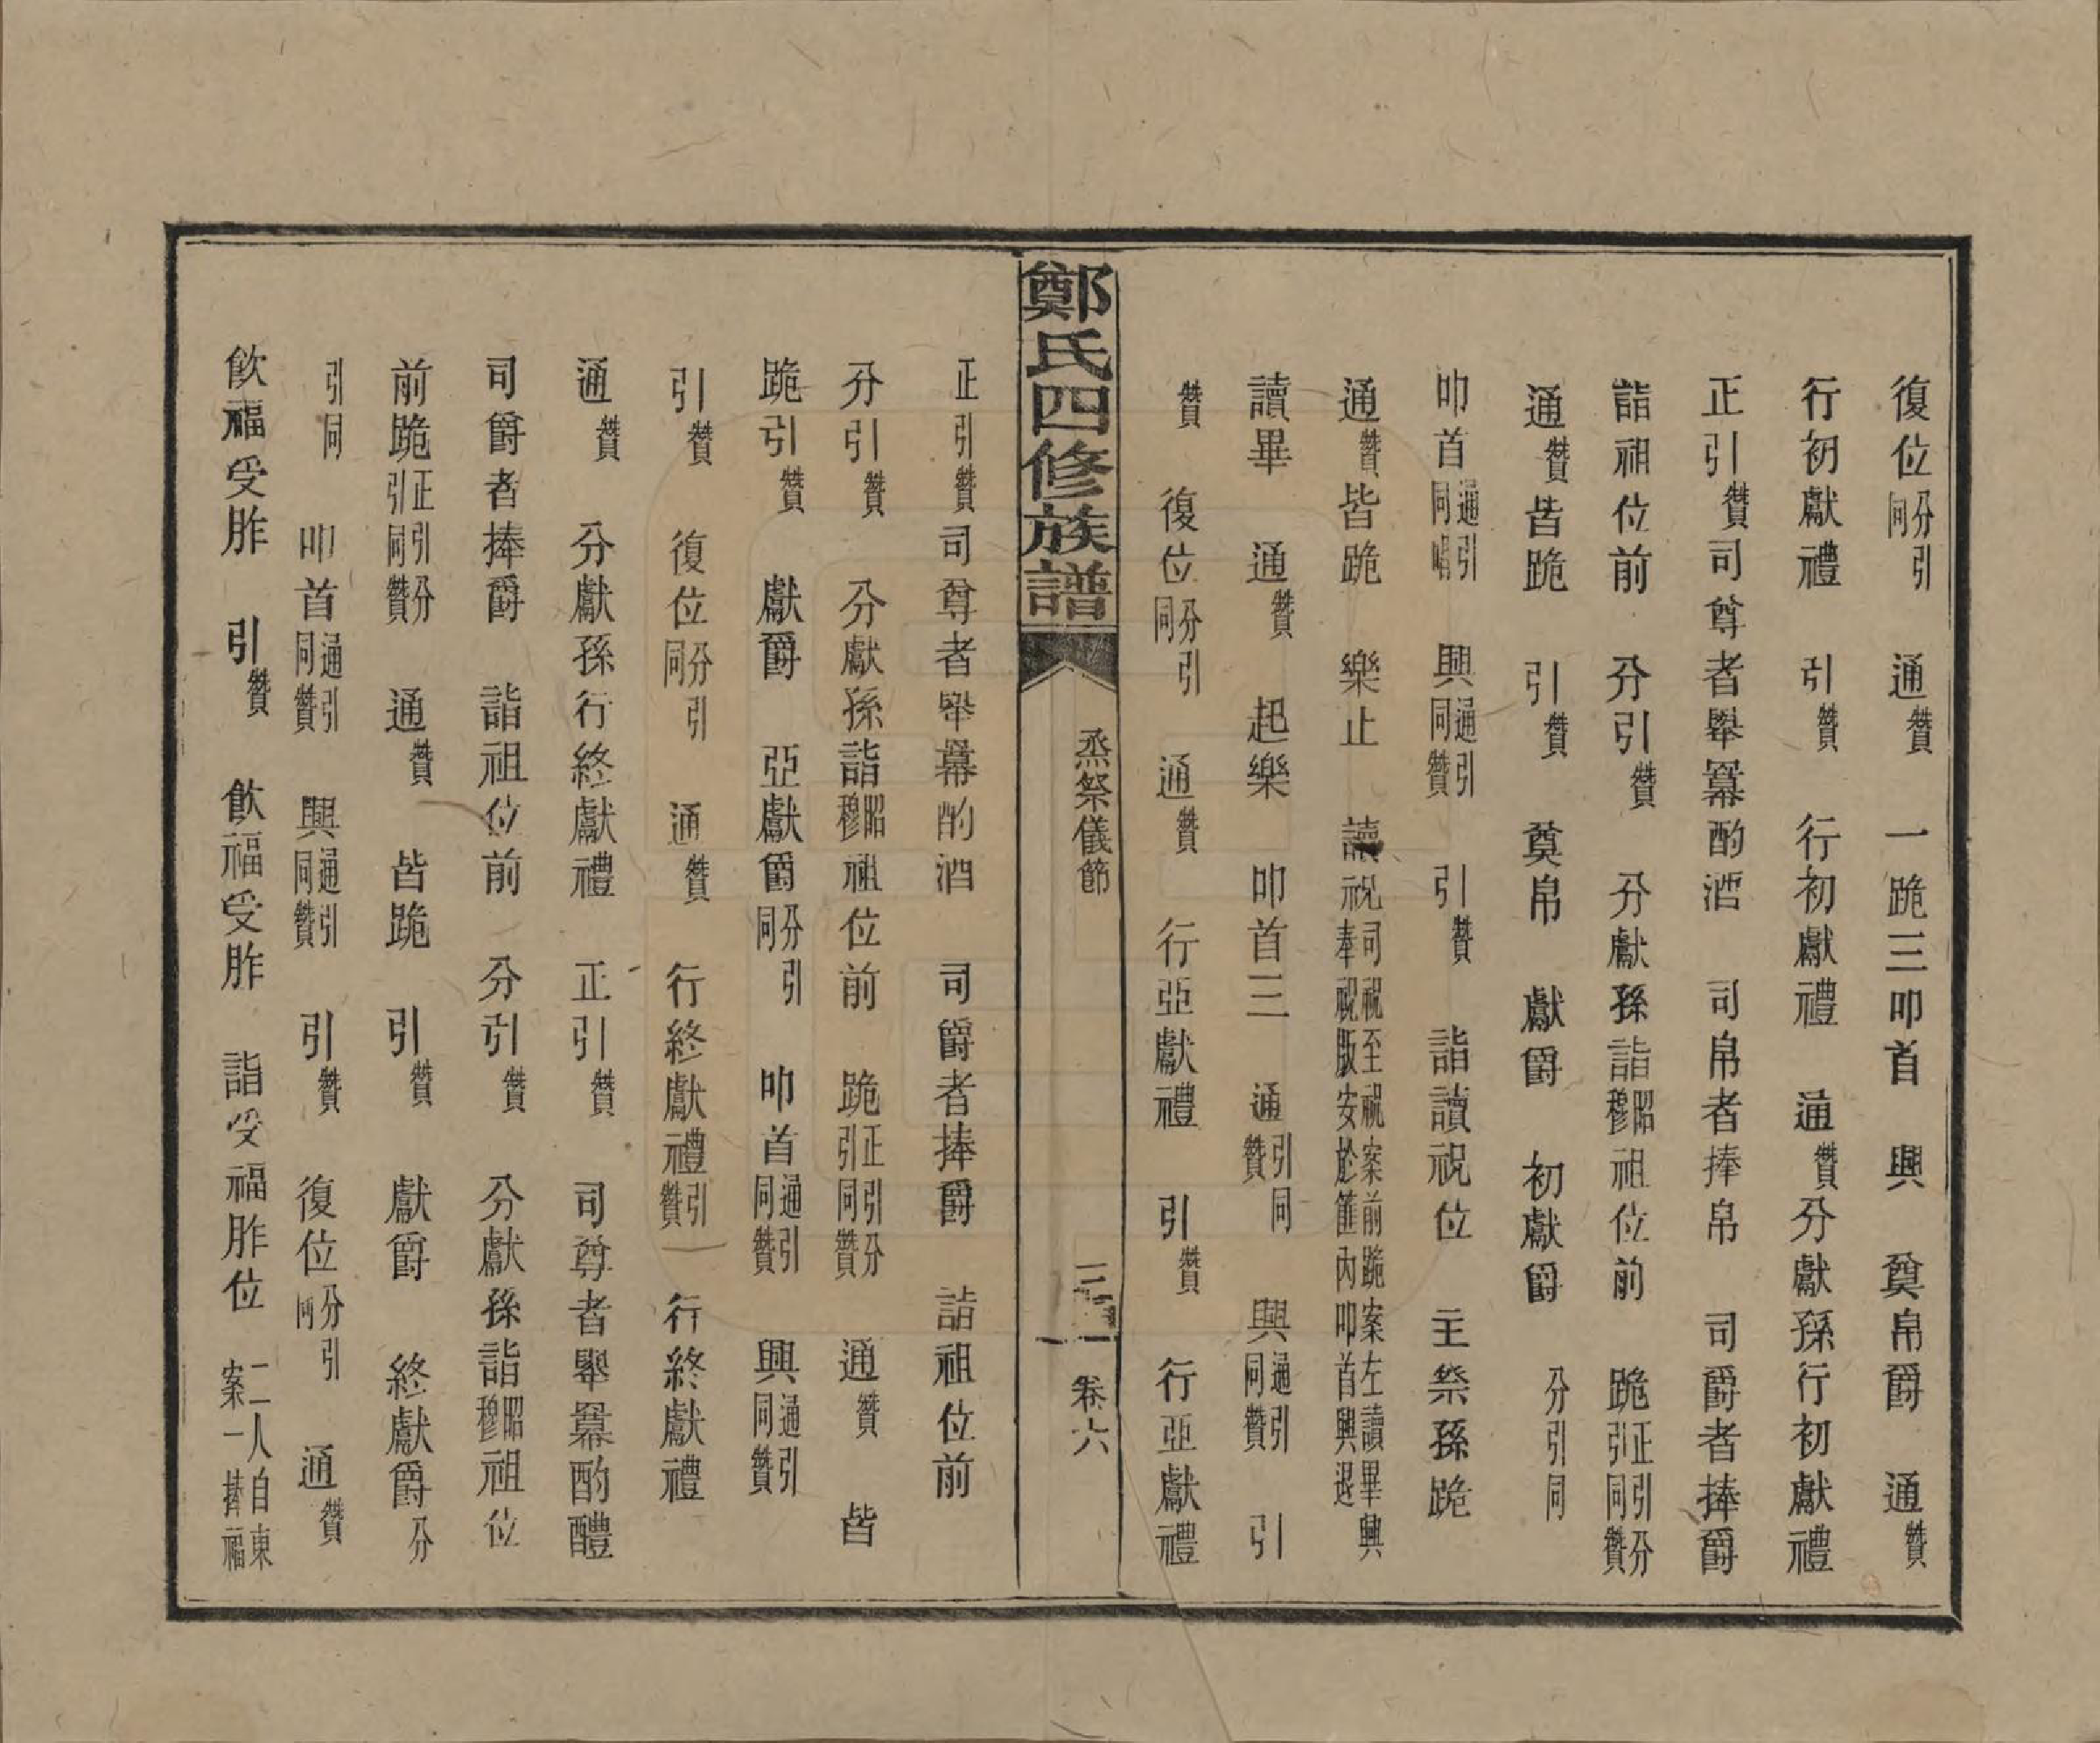 復位分引同　通贊　一跪三叩首　興　奠帛爵　通贊
行初獻禮　引贊　行初獻禮　通贊分獻孫行初獻禮
正引贊司尊者舉冪酌酒　司帛者捧帛　司爵者捧爵
詣祖位前　分引贊　分獻孫詣昭穆祖位前　跪正引分引同贊
通贊皆跪　引贊　奠帛　獻爵　初獻爵　分引同
叩首通引同唱　興通引同贊　引贊　詣讀祝位　主祭孫跪
通贊皆跪　樂止　讀祝司祝至祝案前跪案左讀畢興奉祝版安於匣內叩首興退
讀畢　通贊　起樂　叩首三　通引同贊　興通引同贊　引
贊　復位分引同　通贊　行亞獻禮　引贊　行亞獻禮
鄭氏四修族譜　烝祭儀節　卷六
正引贊司尊者舉冪酌酒　司爵者捧爵　詣祖位前
分引贊　分獻孫詣昭穆祖位前　跪正引分引同贊　通贊　皆
跪引贊　獻爵　亞獻爵分引同　叩首通引同贊　興通引同贊
引贊　復位分引同　通贊　行終獻禮引贊　行終獻禮
通贊　分獻孫行終獻禮　正引贊　司尊者舉冪酌醴
司爵者捧爵　詣祖位前　分引贊　分獻孫詣昭穆祖位
前跪正引分引同贊　通贊　皆跪　引贊　獻爵　終獻爵分
引同　叩首通引同贊　興通引同贊　引贊　復位分引同　通贊
飲福受胙　引贊　飲福受胙　詣受福胙位　二人自東案一捧福